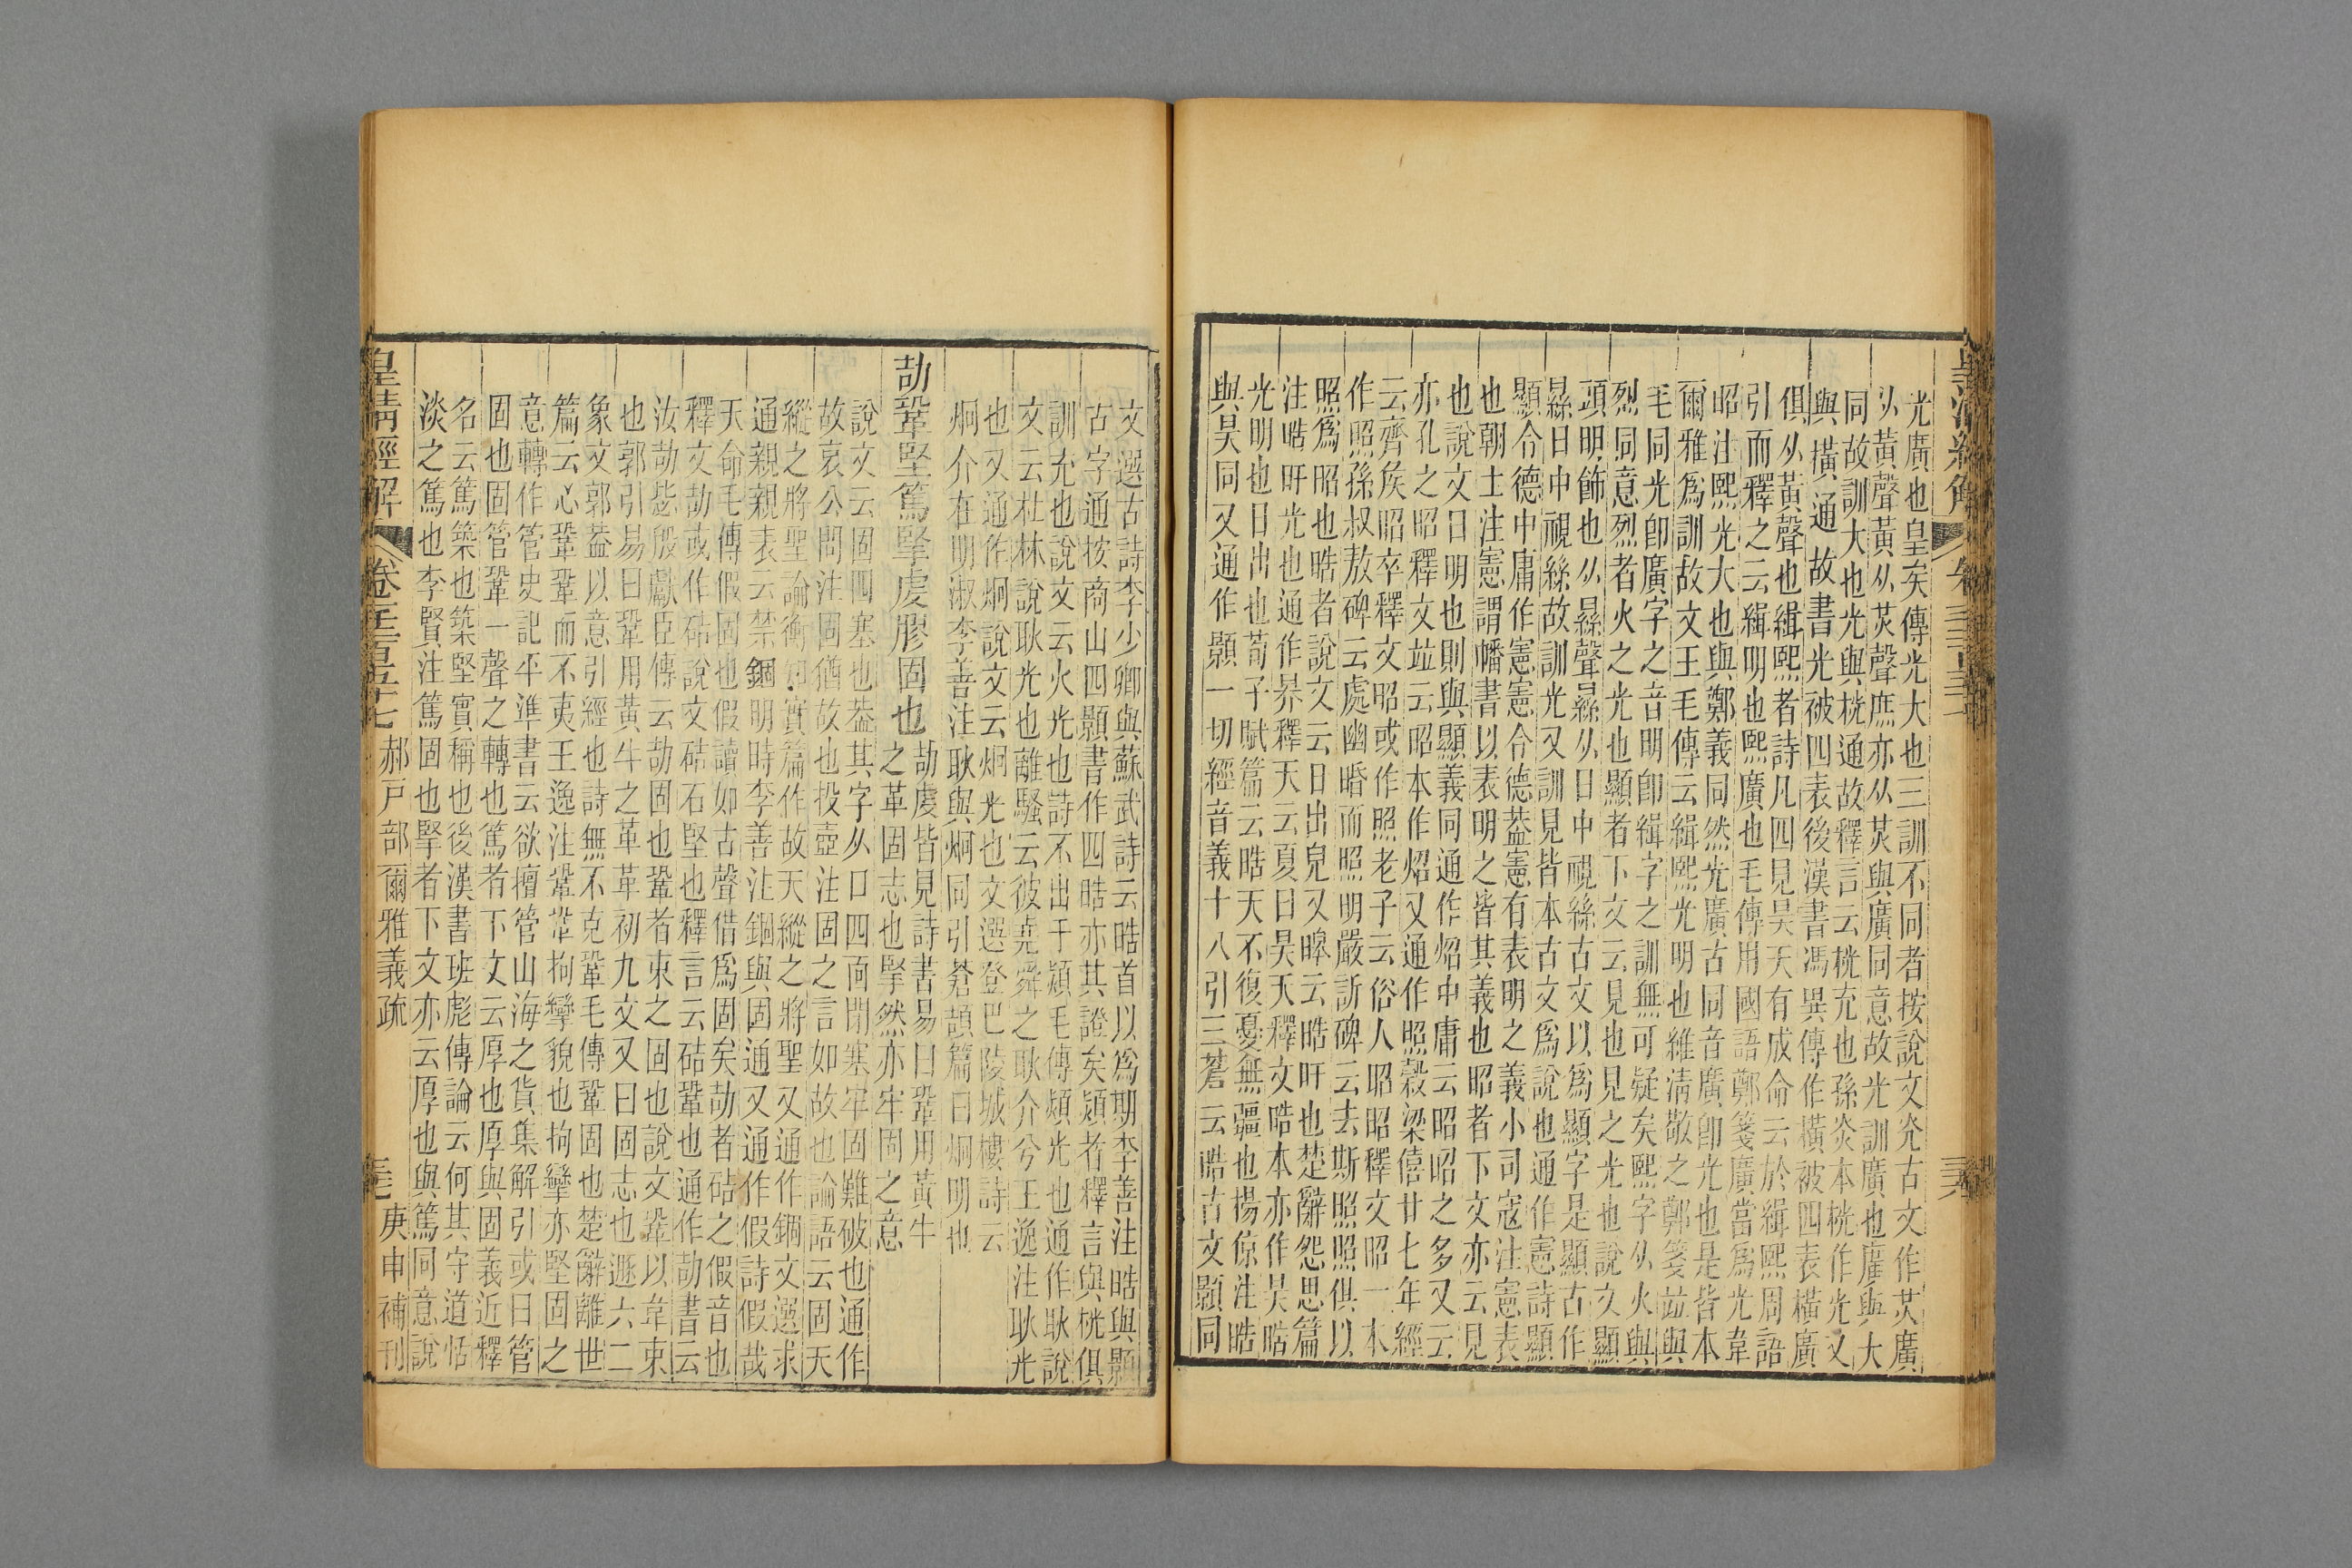 光廣也皇矣傳光大也三訓不同者按說文灮古文作炗廣
从黃聲黃从炗聲庶亦从炗與廣同意故光訓廣也廣與大
同故訓大也光與桄通故釋言云桄充也孫炎本桄作光又
與橫通故書光被四表後漢書馮異傳作橫被四表橫廣
俱从黃聲也緝熙者詩凡四見昊天有成命云於緝熙周語
引而釋之云緝明也熙廣也毛傳用國語鄭箋廣當爲光韋
昭注熙光大也與鄭義同然光廣古同音廣卽光也是皆本
爾雅爲訓故文王毛傳云緝熙光明也維淸敬之鄭箋竝與
毛同光卽廣字之音明卽緝字之訓無可疑矣熙字从火與
烈同意烈者火之光也顯者下文云見也見之光也說文顯
頭明飾也从㬎聲㬎从日中視絲古文以爲顯字是顯古作
㬎日中視絲故訓光又訓見皆本古文爲說也通作憲詩顯
顯令德中庸作憲憲令德葢憲有表明之義小司寇注憲表
也朝士注憲謂幡書以表明之皆其義也昭者下文亦云見
也說文日明也則與顯義同通作炤中庸云昭昭之多又云
亦孔之昭釋文竝云昭本作炤又通作照穀梁僖廿七年經
云齊矦昭卒釋文昭或作照老子云俗人昭昭釋文昭一本
作照孫叔敖碑云處幽㬰而照明嚴訢碑云去斯照照俱以
照爲昭也晧者說文云日出皃又暤云晧旰也楚辭怨思篇
注晧旰光也通作昦釋天云夏日昊天釋文晧本亦作昊晧
光明也日出也荀子賦篇云晧天不復憂無疆也揚倞注晧
與昊同又通作顥一切經音義十八引三蒼云晧古文顥同
文選古詩李少卿與蘇武詩云晧首以爲期李善注晧與顥
古字通按商山四顥書作四晧亦其證矣熲者釋言與桄俱
訓充也說文云火光也詩不出于熲毛傳熲光也通作耿說
文云杜林說耿光也離騷云彼堯舜之耿介兮王逸注耿光
也又通作炯說文云炯光也文選登巴陵城樓詩云
炯介在明淑李善注耿與炯同引蒼頡篇曰炯明也
劼鞏堅篤掔虔膠固也劼虔皆見詩書易曰鞏用黃牛之革固志也掔然亦牢固之意
說文云固四塞也葢其字从囗四面閉塞牢固難破也通作
故哀公問注固猶故也投壺注固之言如故也論語云固天
縱之將聖論衡知實篇作故天縱之將聖又通作錮文選求
通親親表云禁錮明時李善注錮與固通又通作假詩假哉
天命毛傳假固也假讀如古聲借爲固矣劼者硈之假音也
釋文劼或作硈說文硈石堅也釋言云硈鞏也通作劼書云
汝劼毖殷獻臣傳云劼固也鞏者束之固也說文鞏以韋束
也郭引易曰鞏用黃牛之革革初九文又曰固志也遯六二
象文郭葢以意引經也詩無不克鞏毛傳鞏固也楚辭離世
篇云心鞏鞏而不夷王逸注鞏鞏拘攣貌也拘攣亦堅固之
意轉作管史記平準書云欲擅管山海之貨集解引或曰管
固也固管鞏一聲之轉也篤者下文云厚也厚與固義近釋
名云篤築也築堅實稱也後漢書班彪傳論云何其守道恬
淡之篤也李賢注篤固也掔者下文亦云厚也與篤同意說
皇淸經解 卷千二百五十七 郝戶部爾雅義疏 庚申補刊